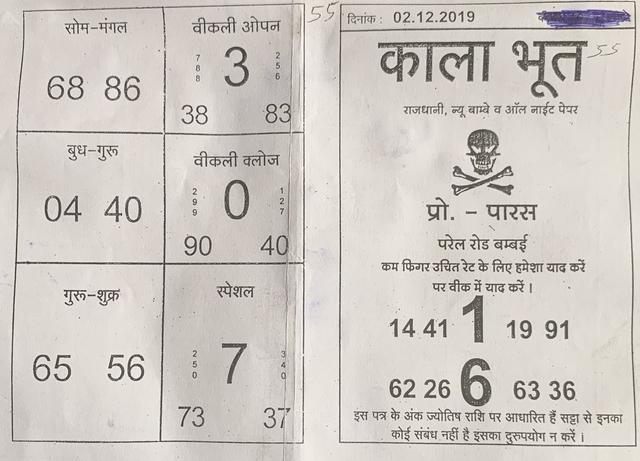 सोम-मंगल
68 86
वीकली ओपन
7
8
8
3
2
5
6
38 83
बुध-गुरू
04 40
वीकली क्लोज
2
9
9
0
1
2
7
90 40
गुरू-शुक्र
65 56
स्पेशल
2
5
0
7
3
4
0
73 37
55
दिनांक : 02.12.2019
काला भूत
55
राजधानी, न्यू बाम्बे व ऑल नाईट पेपर
प्रो. - पारस
परेल रोड बम्बई
कम फिगर उचित रेट के लिए हमेशा याद करें
पर वीक में याद करें ।
14 41 1 19 91
62 26 6 63 36
इस पत्र के अंक ज्योतिष राशि पर आधारित हैं सट्टा से इनका
कोई संबंध नहीं है इसका दुरुपयोग न करें ।